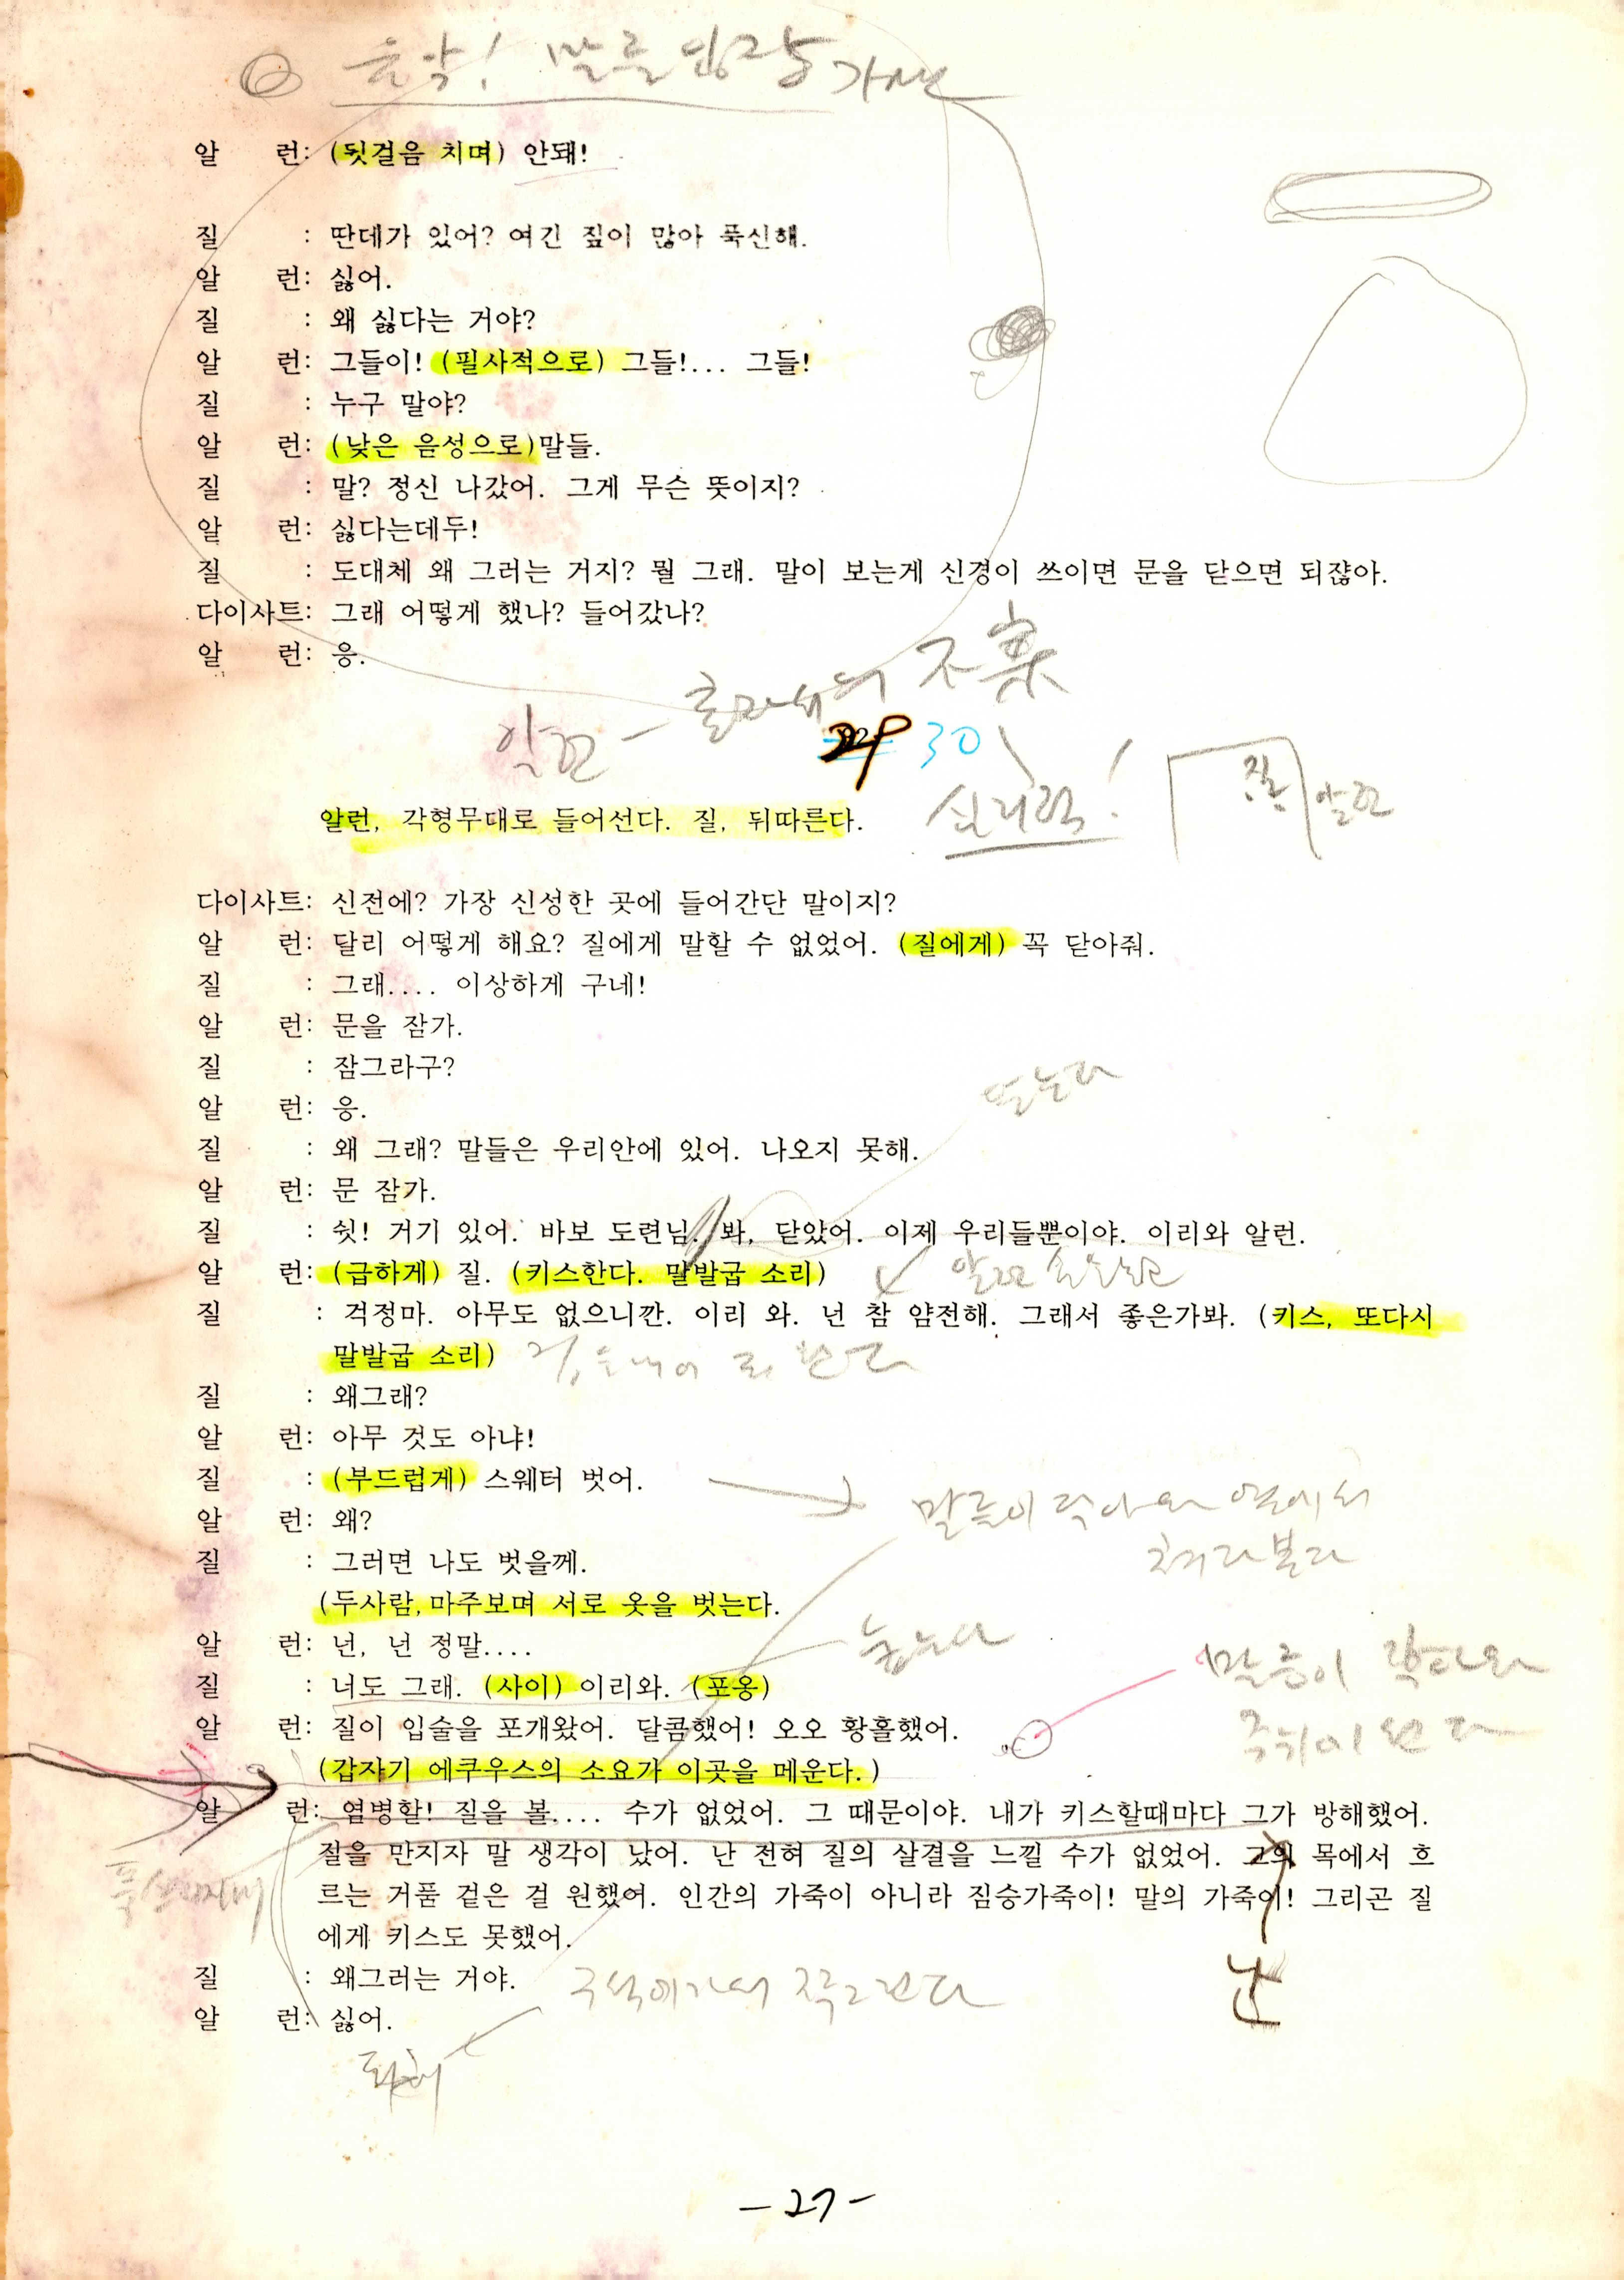 음악! 말들 등장
알 런: (뒷걸음 치며) 안돼!
질 : 딴데가 있어? 여긴 짚이 많아 푹신해.
알 런: 싫어.
질 : 왜 싫다는 거야?
알 런: 그들이! (필사적으로) 그들!... 그들!
질 : 누구 말야?
알 런: (낮은 음성으로)말들.
질 : 말? 정신 나갔어. 그게 무슨 뜻이지?
알 런: 싫다는데두!
질 : 도대체 왜 그러는 거지? 뭘 그래. 말이 보는게 신경이 쓰이면 문을 닫으면 되쟎아.
다이사트: 그래 어떻게 했나? 들어갔나?
알 런: 응.
알런 —
30
심리적!
질 알런
알런, 각형무대로 들어선다. 질, 뒤따른다.
다이사트: 신전에? 가장 신성한 곳에 들어간단 말이지?
알 런: 달리 어떻게 해요? 질에게 말할 수 없었어. (질에게) 꼭 닫아줘.
질 : 그래.... 이상하게 구네!
알 런: 문을 잠가.
질 : 잠그라구?
알 런: 응.
질 : 왜 그래? 말들은 우리안에 있어. 나오지 못해.
알 런: 문 잠가.
질 : 쉿! 거기 있어. 바보 도련님. 봐, 닫았어. 이제 우리들뿐이야. 이리와 알런.
알 런: (급하게) 질. (키스한다. 말발굽 소리)
질 : 걱정마. 아무도 없으니깐. 이리 와. 넌 참 얌전해. 그래서 좋은가봐. (키스, 또다시
말발굽 소리)
질 : 왜그래?
알 런: 아무 것도 아냐!
질 : (부드럽게) 스웨터 벗어.
말들이 다가와 옆에서
쳐다본다
알 런: 왜?
질 : 그러면 나도 벗을께.
(두사람, 마주보며 서로 옷을 벗는다.
알 런: 넌, 넌 정말....
눕는다
질 : 너도 그래. (사이) 이리와. (포옹)
말들이 다가와
알 런: 질이 입술을 포개왔어. 달콤했어! 오오 황홀했어.
(갑자기 에쿠우스의 소요가 이곳을 메운다.)
알 런: 염병할! 질을 볼.... 수가 없었어. 그 때문이야. 내가 키스할때마다 그가 방해했어.
절을 만지자 말 생각이 났어. 난 전혀 질의 살결을 느낄 수가 없었어. 그의 목에서 흐
르는 거품 겉은 걸 원했여. 인간의 가죽이 아니라 짐승가죽이! 말의 가죽이! 그리곤 질
에게 키스도 못했어.
질 : 왜그러는 거야.
구석에가서
난
알 런: 싫어.
-27-